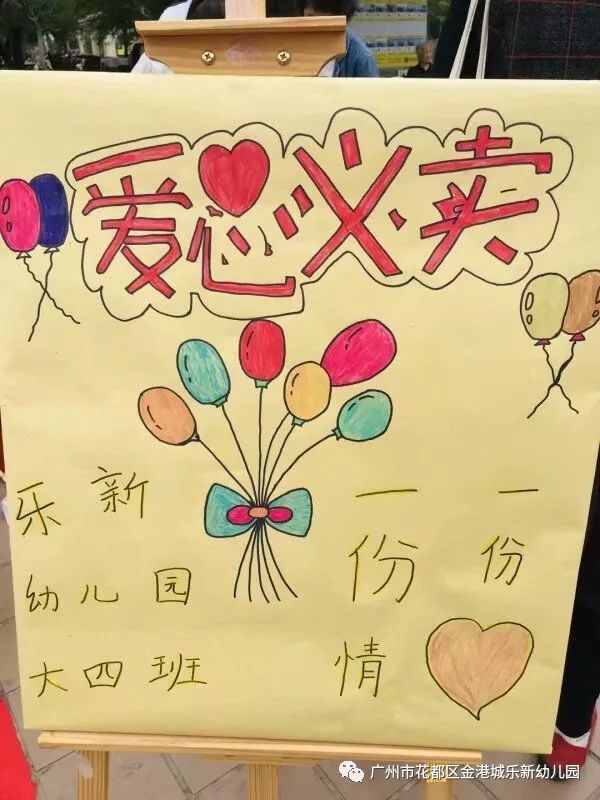 爱心义卖
乐新
幼儿园
大四班
一份情
一份
广州市花都区金港城乐新幼儿园